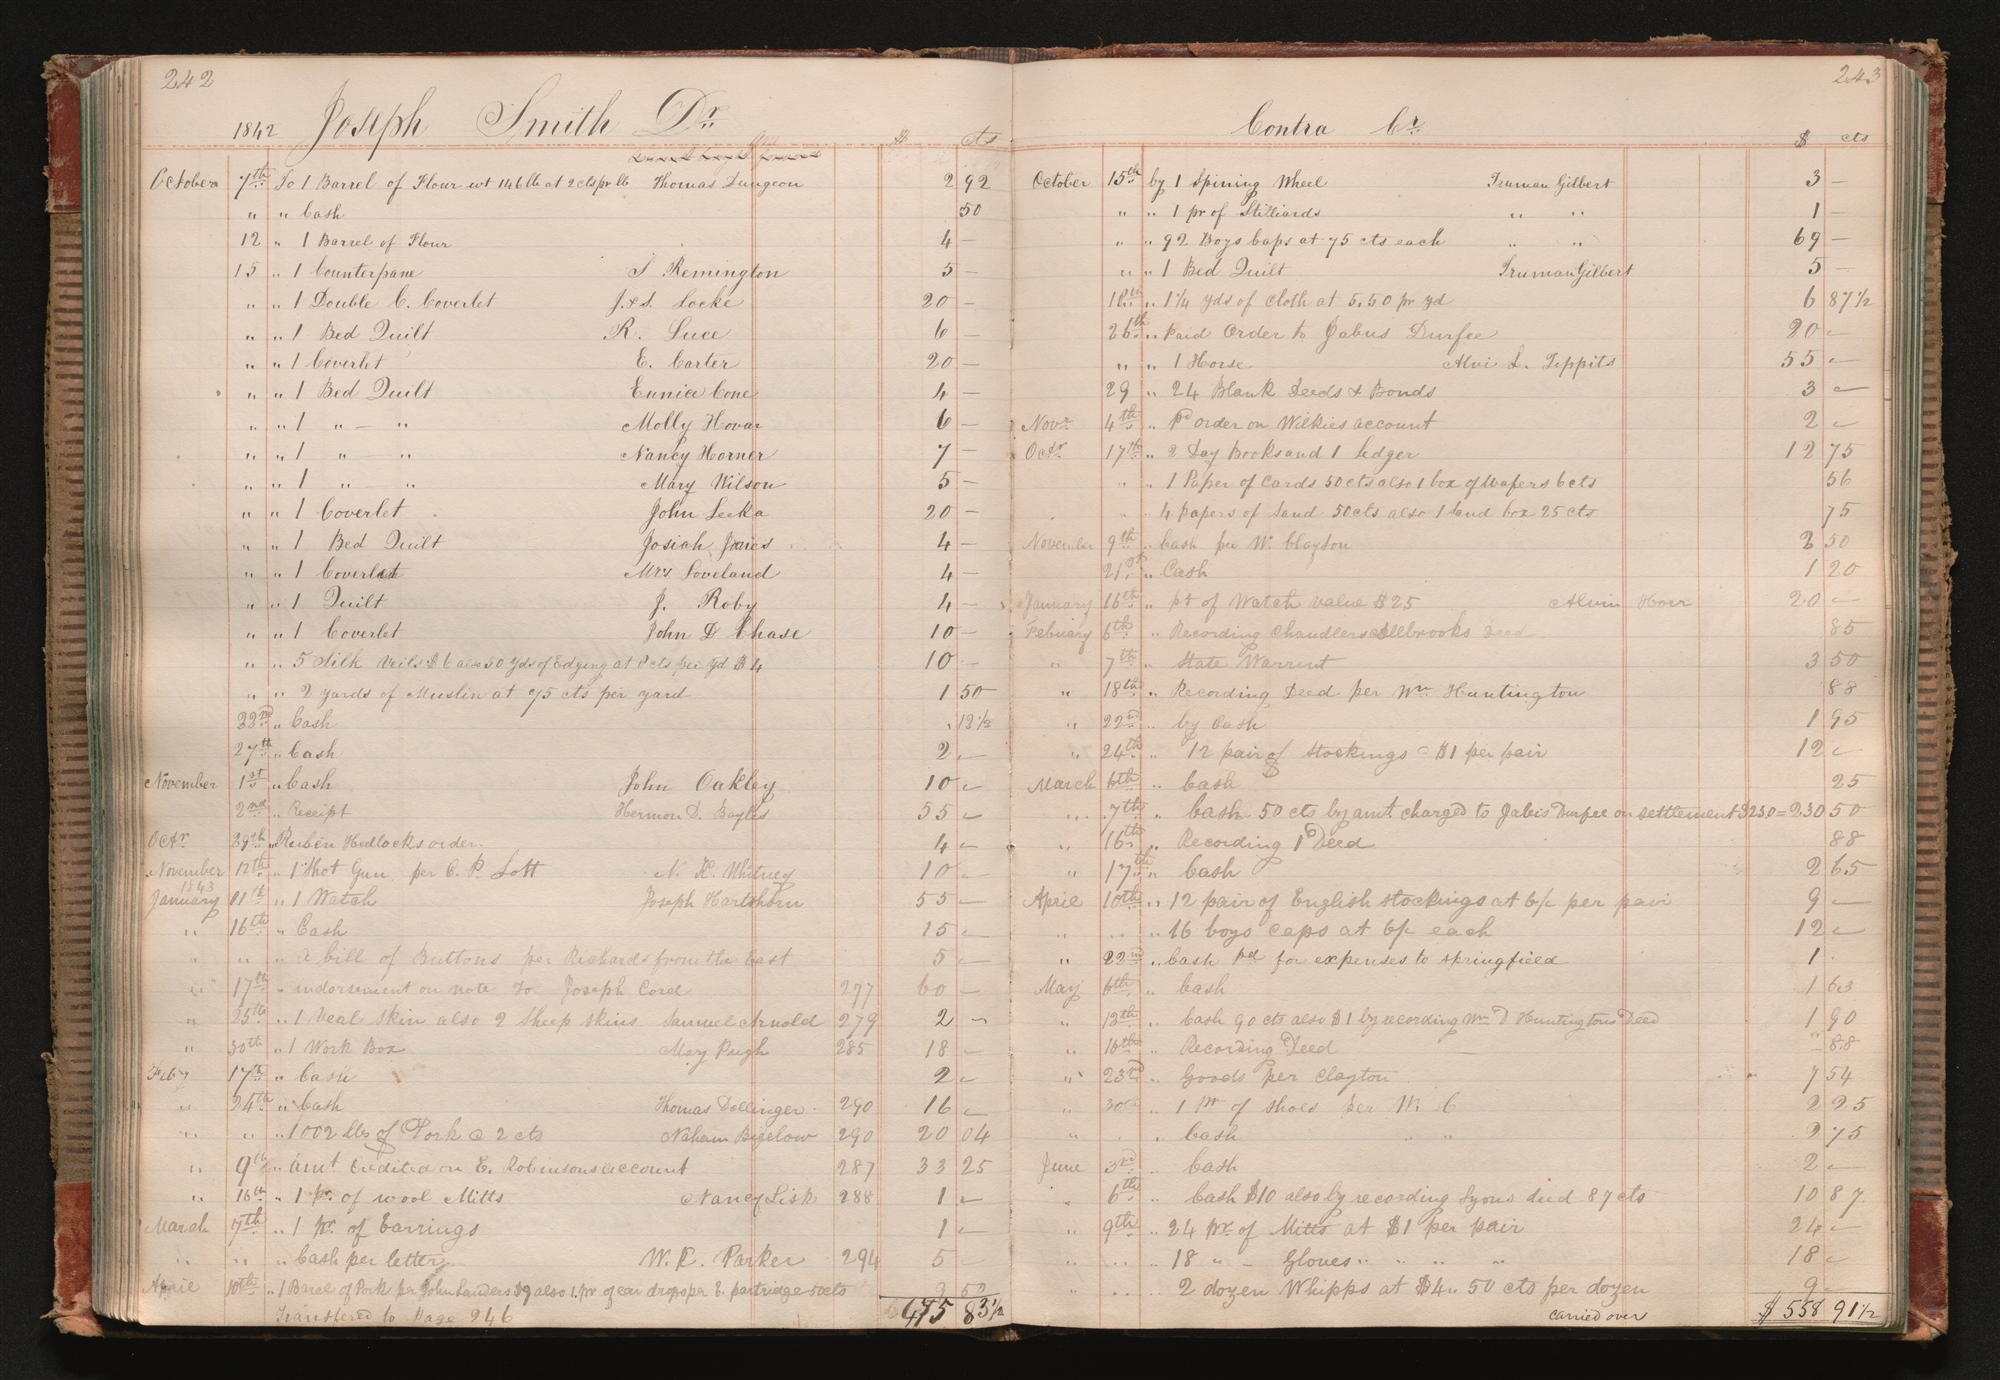 242
1842 Joseph Smith Dr.
$ cts
October 7th To 1 Barrel of Flour wt 146 lb at 2 cts pr lb Thomas Dungeon 2 92
" " Cash 50
12 " 1 Barrel of Flour 4 —
15 " 1 Counterpane S Remington 5 —
" " 1 Double C. Coverlet J. & S. Locke 20 —
" " 1 Bed Quilt R. Luce 6 —
" " 1 Coverlet E. Carter 20 —
" " 1 Bed Quilt Eunice Cone 4 —
" " 1 " — " Molly Hovar 6 —
" " 1 " — " Nancy Horner 7 —
" " 1 " — " Mary Wilson 5 —
" " 1 Coverlet John Leeka 20 —
" " 1 Bed Quilt Josiah Jones 4 —
" " 1 Coverlet Mrs Loveland 4 —
" " 1 Quilt J. Roby 4 —
" " 1 Coverlet John D Chase 10 —
" " 5 Silk Veils $6 also 50 yds of Edging at 8 cts per yd $4 10 —
" " 2 yards of Muslin at 75 cts per yard 1 50
22nd " Cash " 12 1/2
27th " Cash 2 —
November 1st " Cash John Oakley 10 —
2nd " Receipt Hermon D. Bayles 55 —
Octr 29th " Reuben Hedlocks order 4 —
November 12th " 1 Shot Gun per C. P. Lott N. K. Whitney 10 —
1843
January 11th " 1 Watch Joseph Hartshorn 55 —
" 16th " Cash 15 —
" " " A bill of Buttons per Richards from the East 5 —
" 17th " endorsement on note To Joseph Cord 277 60 —
" 25th " 1 Veal Skin also 2 Sheep skins Samuel Arnold 279 2 —
" 30th " 1 Work Box Mary Pugh 285 18 —
Feby 17th " Cash 2 —
" 24th " Cash Thomas Dollinger 290 16 —
" " " 1002 lbs of Pork @ 2 cts Nahum Bigelow 290 20 04
" 9th " amt credited on E. Robinsons account 287 33 25
" 16th " 1 pr. of wool Mitts Nancy Lisk 288 1 —
March 7th " 1 pr. of Earrings 1 —
" " " Cash per letter W. R. Parker 294 5 —
April 10th " 1 Barel of Pork per John Sanders $9 also 1 pr of ear drops per E. partridge 50 cts 9 50
Transfered to Page 246 475 83 1/2
243
Contra Cr.
$ cts
October 15th by 1 Spining Wheel Truman Gilbert 3 —
" " 1 pr of Stilliards " " 1 —
" " 92 Boys Caps at 75 cts each " " 69 —
" " 1 Bed Quilt Truman Gilbert 5 —
18th " 1 1/4 yds of cloth at 5.50 pr yd 6 87 1/2
26th " Paid Order to Jabus Durfee 20 —
" " 1 Horse Alvi L. Tippits 55 —
29 " 24 Blank Deeds & Bonds 3 —
Novr 4th " Pd order on Wilkies account 2 —
Octr. 17th " 2 Day Books and 1 Ledger 12 75
" " 1 Paper of Cards 50 cts also 1 box of Wafers 6 cts 56
" " 4 papers of Sand 50 cts also 1 Sand box 25 cts 75
November 9th " Cash per W. Clayton 2 50
21st " Cash 1 20
January 16th " pt of Watch value $25 Alvin Horr 20 —
Febuary 6th " Recording Chandlers Deed 85
" 7th " State Warrent 3 50
" 18th " Recording Deed per Wm Huntington 88
" 22nd " by Cash 1 95
" 24th " 12 pair of stockings @ $1 per pair 12 —
March 6th " Cash 25
" 7th " Cash 50 cts by amt. charged to Jabis Durfee on settlement $230 = 230 50
" 16th " Recording 1 Deed 88
" 17th " Cash 2 65
April 10th " 12 pair of English stockings at 6/- per pair 9 —
" " " 16 boys caps at 6/- each 12 —
" 22nd " Cash pd for expenses to Springfield 1
May 6th " Cash 1 63
" 13th " Cash 90 cts also $1 by recording Wm D Huntingtons Deed 1 90
" 16th " Recording Deed 88
" 23rd " Goods per Clayton 7 54
" 30th " 1 pr of shoes per W. C 2 25
" " " Cash " " 2 75
June 3rd " Cash 2 —
" 6th " Cash $10 also by recording Lyons deed 87 cts 10 87
" 9th " 24 pr. of Mitts at $1 per pair 24 —
" " " 18 " — Gloves " " " " 18 —
" " " 2 dozen Whipps at $4.50 cts per dozen 9 —
carried over $ 558 91 1/2